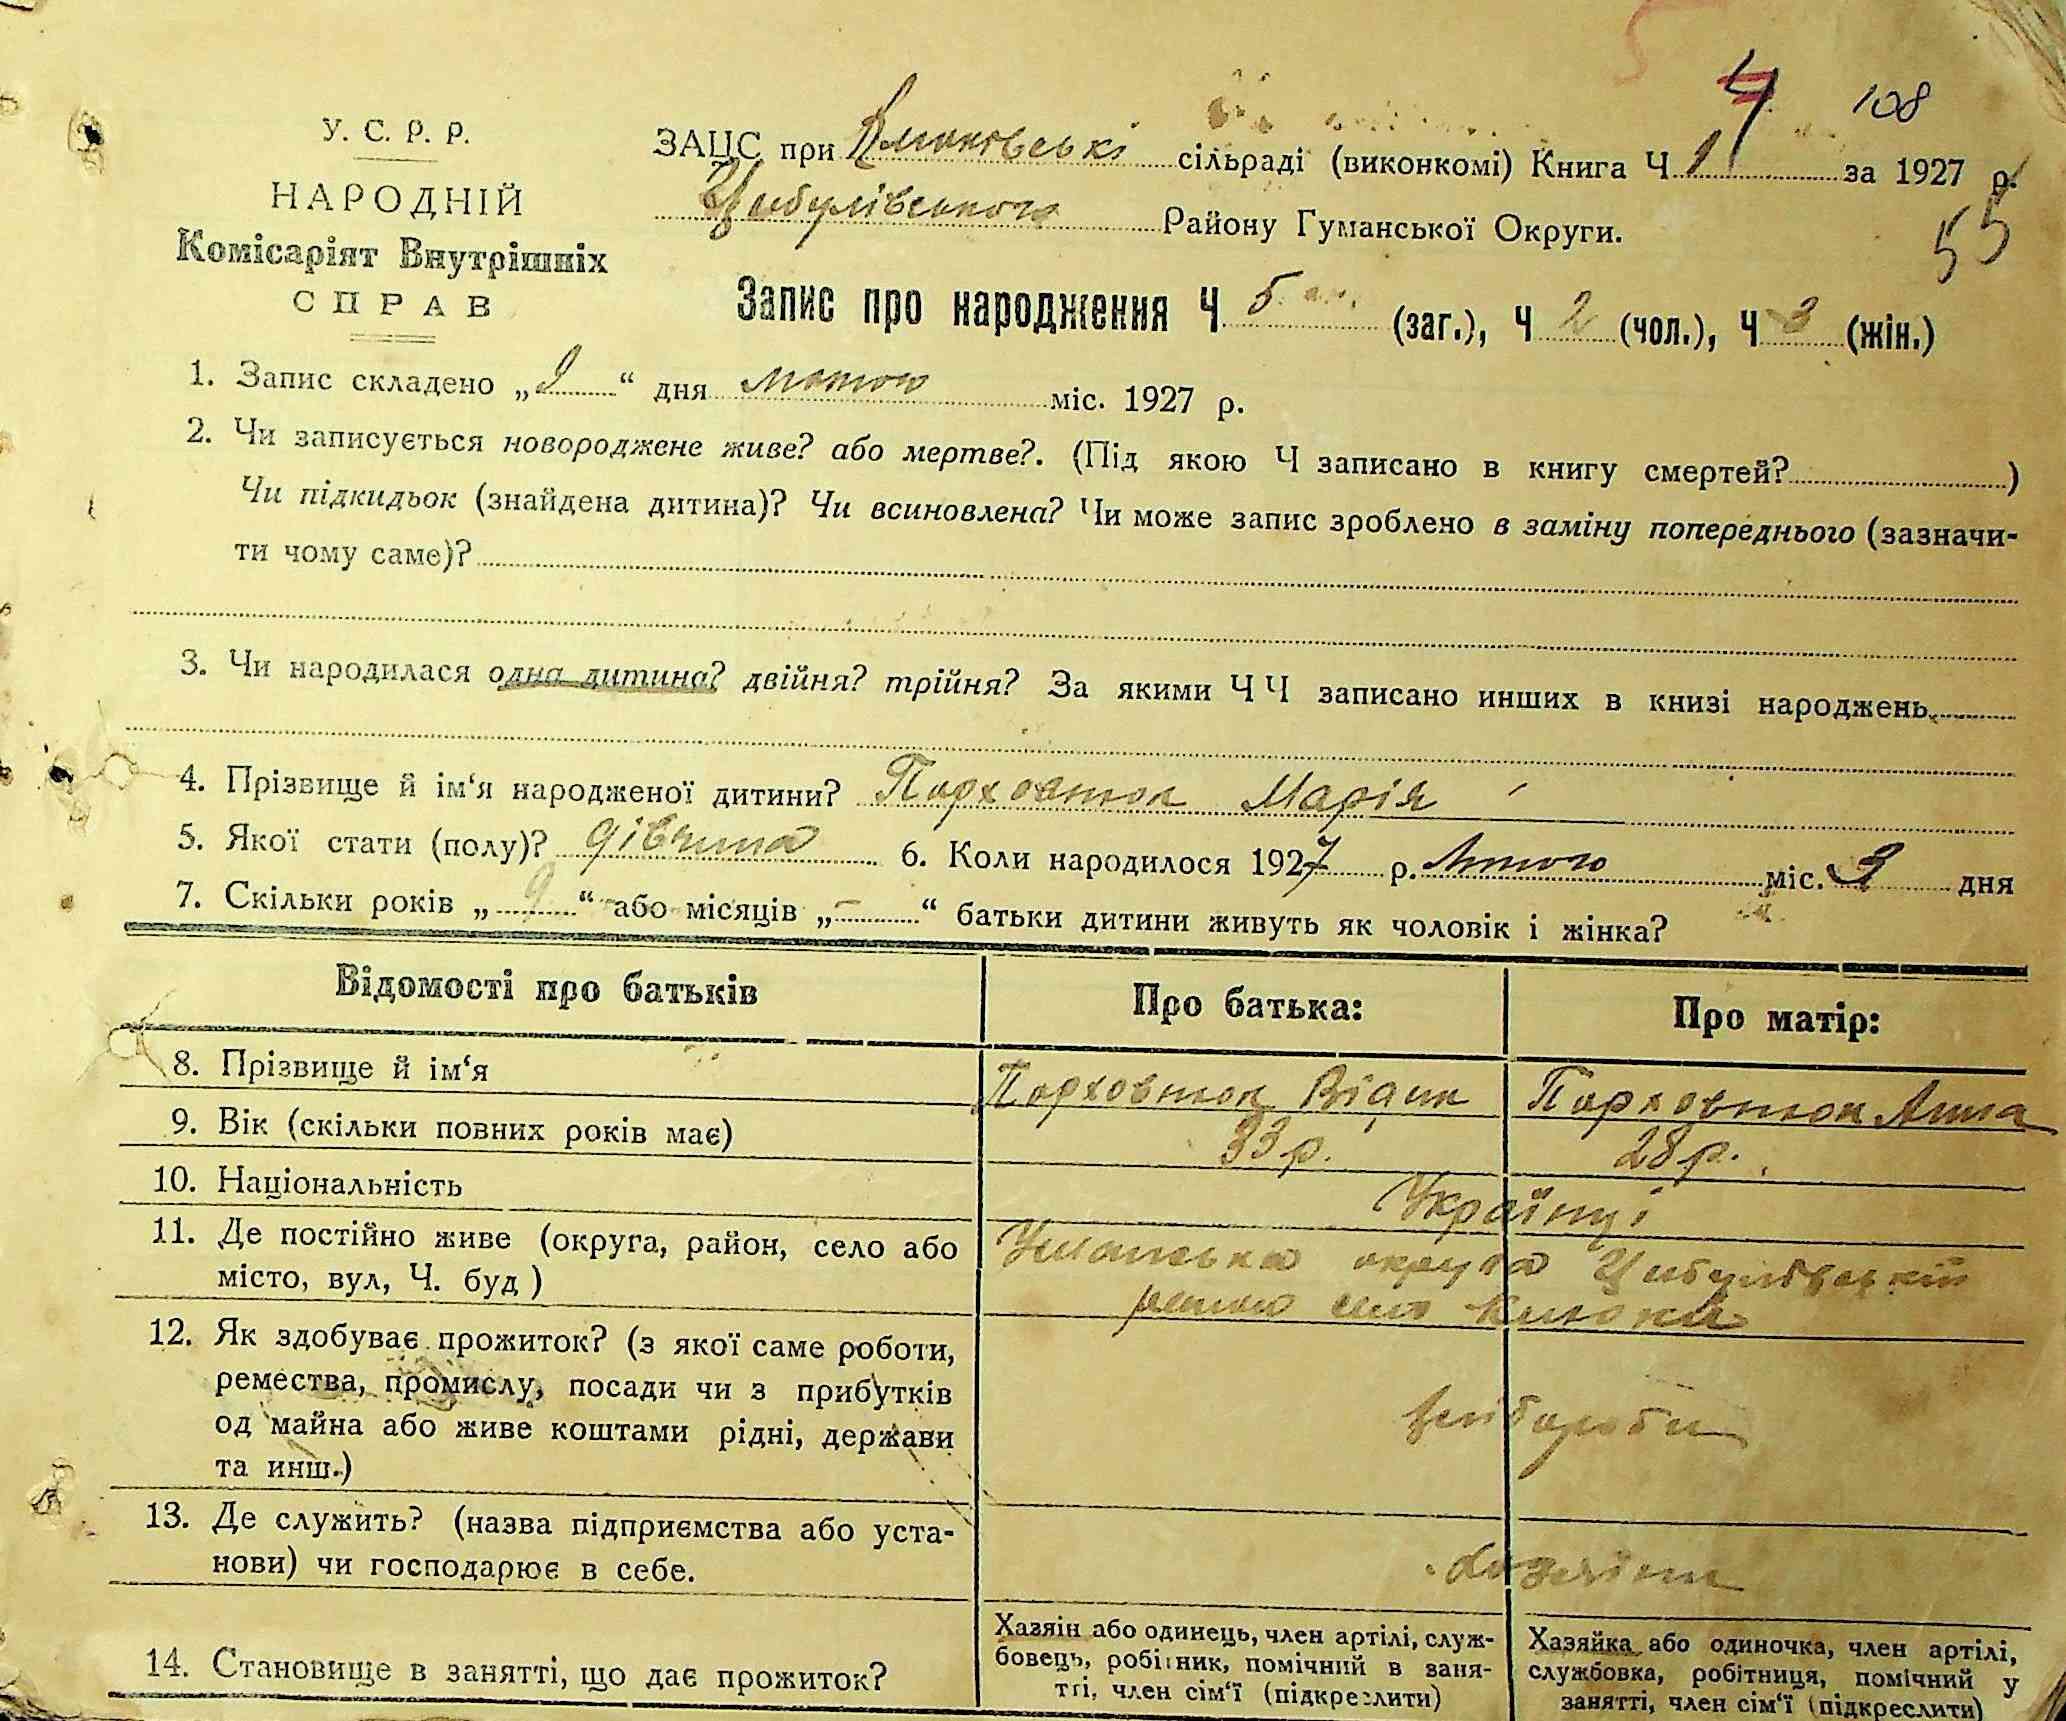 4 108
У. С. Р. Р.
ЗАЦС при сільраді (виконкомі) Книга Ч 1 за 1927 р.
НАРОДНІЙ
Цибулівського Району Гуманської Округи.
55
Комісаріят Внутрішніх
СПРАВ
Запис про народження Ч 5 (заг.), Ч 2 (чол.), Ч 3 (жін.)
1. Запис складено „9“ дня лютого міс. 1927 р.
2. Чи записується новороджене живе? або мертве?. (Під якою Ч записано в книгу смертей? )
Чи підкидьок (знайдена дитина)? Чи всиновлена? Чи може запис зроблено в заміну попереднього (зазначи-
ти чому саме)?
3. Чи народилася одна дитина? двійня? трійня? За якими Ч Ч записано инших в книзі народжень
4. Прізвище й ім‘я народженої дитини? Порховнюк Марія
5. Якої стати (полу)? дівчина 6. Коли народилося 1927 р. Лютого міс. 9 дня
7. Скільки років „9“ або місяців „–“ батьки дитини живуть як чоловік і жінка?
Відомості про батьків Про батька: Про матір:
8. Прізвище й ім‘я Порховнюк Порховнюк Анна
9. Вік (скільки повних років має) 33 р. 28 р.
10. Національність Українці
11. Де постійно живе (округа, район, село або Уманська округа Цибулівський
місто, вул, Ч. буд ) район село
12. Як здобуває прожиток? (з якої саме роботи,
ремества, промислу, посади чи з прибутків
од майна або живе коштами рідні, держави
та инш.)
13. Де служить? (назва підприємства або уста-
нови) чи господарює в себе.
14. Становище в занятті, що дає прожиток?
Хазяін або одинець, член артілі, служ-
бовець, робітник, помічний в заня-
тті, член сім‘ї (підкреслити)
Хазяйка або одиночка, член артілі,
службовка, робітниця, помічний у
занятті, член сім‘ї (підкреслити)